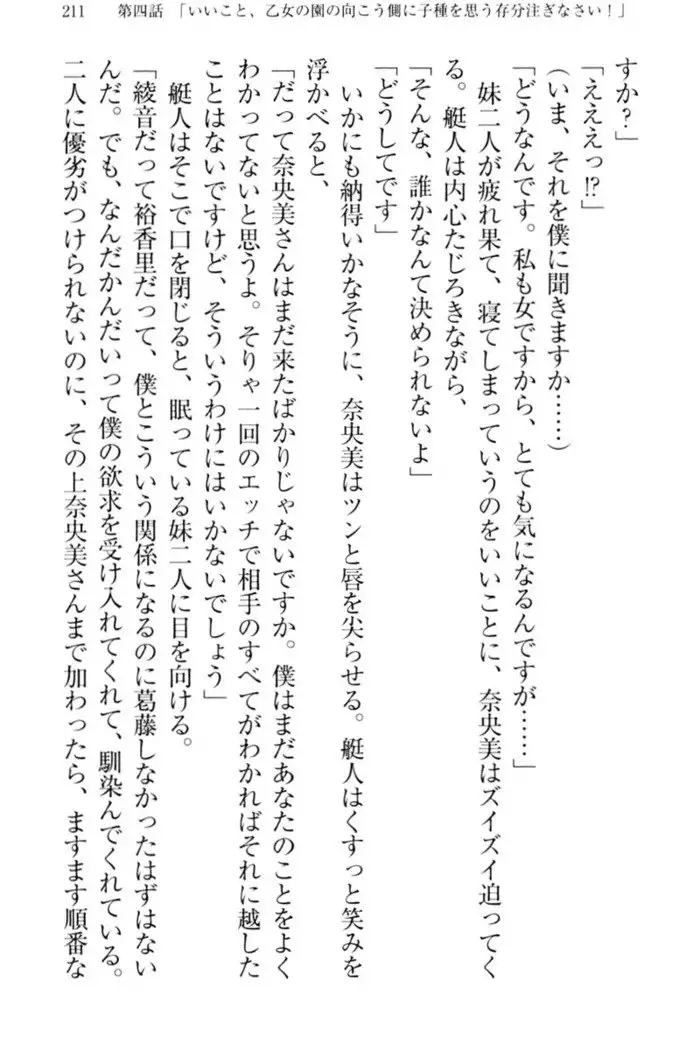 211　第四話　「いいこと、乙女の園の向こう側に子種を思う存分注ぎなさい！」
すか？」
「えええっ!?」
（いま、それを僕に聞きますか……）
「どうなんです。私も女ですから、とても気になるんですが……」
　妹二人が疲れ果て、寝てしまっていうのをいいことに、奈央美はズイズイ迫ってく
る。艇人は内心たじろきながら、
「そんな、誰かなんて決められないよ」
「どうしてです」
　いかにも納得いかなそうに、奈央美はツンと唇を尖らせる。艇人はくすっと笑みを
浮かべると、
「だって奈央美さんはまだ来たばかりじゃないですか。僕はまだあなたのことをよく
わかってないと思うよ。そりゃ一回のエッチで相手のすべてがわかればそれに越した
ことはないですけど、そういうわけにはいかないでしょう」
　艇人はそこで口を閉じると、眠っている妹二人に目を向ける。
「綾音だって裕香里だって、僕とこういう関係になるのに葛藤しなかったはずはない
んだ。でも、なんだかんだいって僕の欲求を受け入れてくれて、馴染んでくれている。
二人に優劣がつけられないのに、その上奈央美さんまで加わったら、ますます順番な